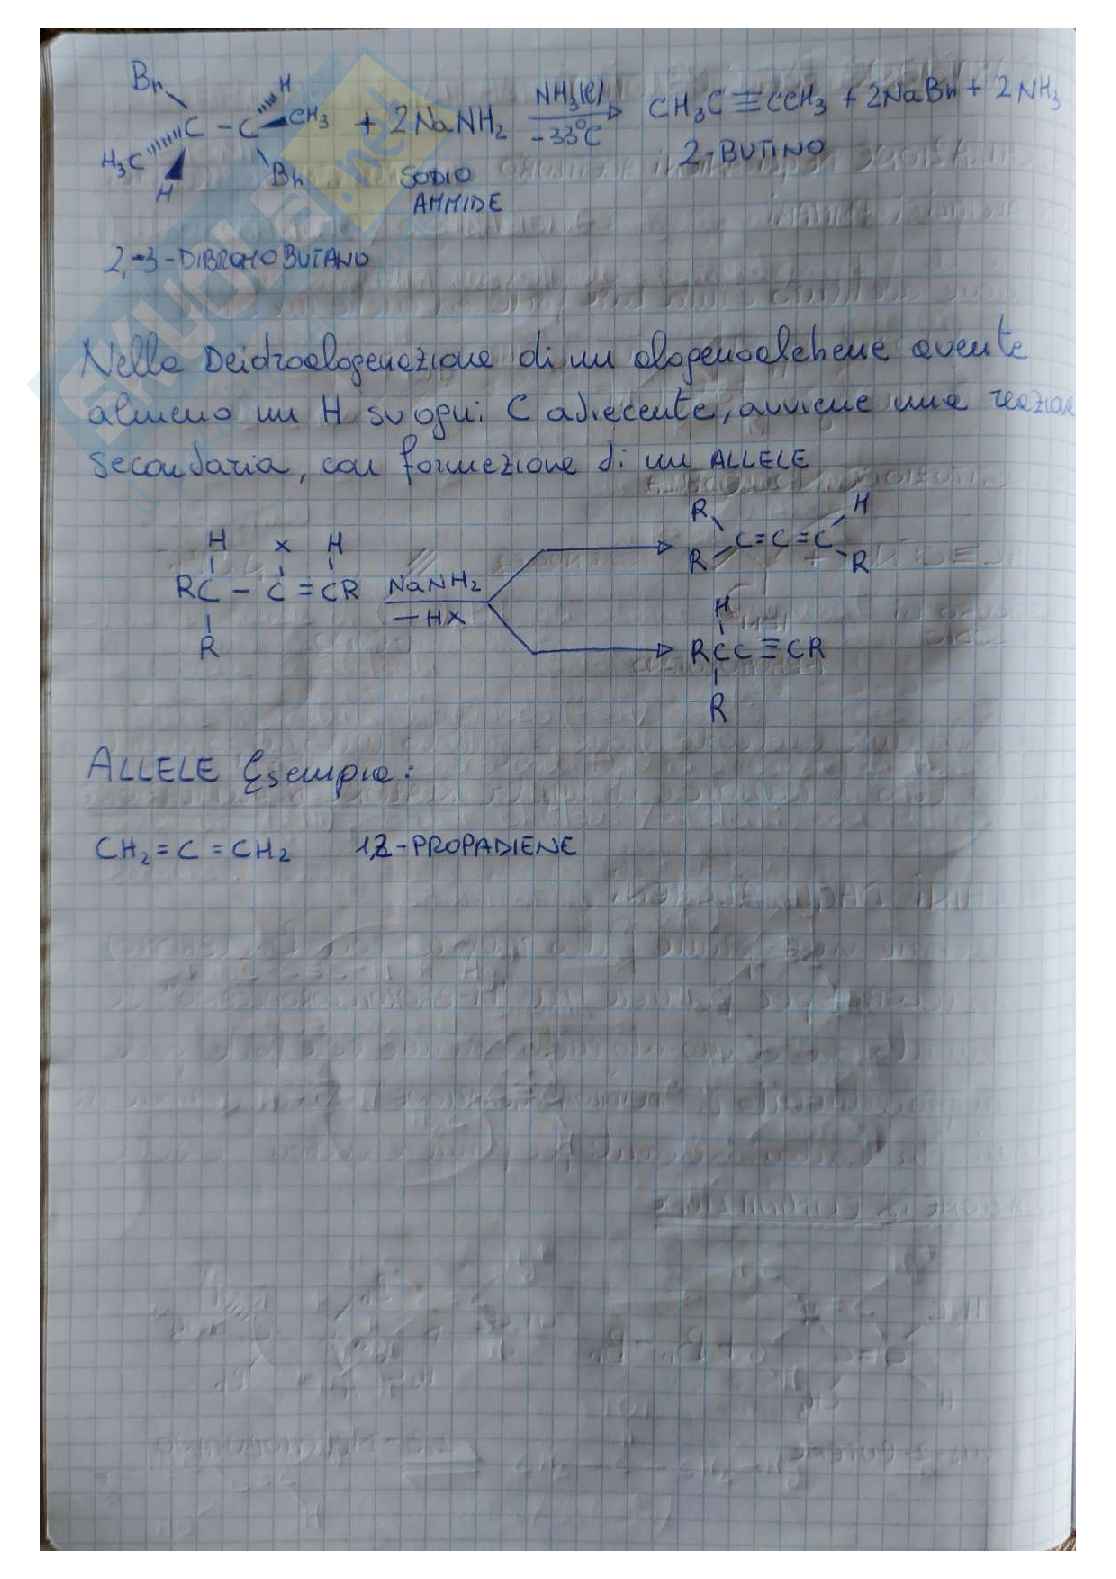 Br H
C - C CH₃ + 2NaNH₂ NH₃(l) -33°C CH₃C≡CCH₃ + 2NaBr + 2NH₃
H₃C H Br SODIO AMMIDE 2-BUTINO
2,-3-DIBROMOBUTANO
Nella Deidroalogenazione di un alogenoalchene avente
almeno un H su ogni C adiacente, avviene una reazion
secondaria, con formazione di un ALLELE
R H
H X H C=C=C
RC - C =CR NaNH₂ R R
R -HX H
RCC≡CR
R
ALLELE Esempio:
CH₂=C=CH₂ 1,2-PROPADIENE